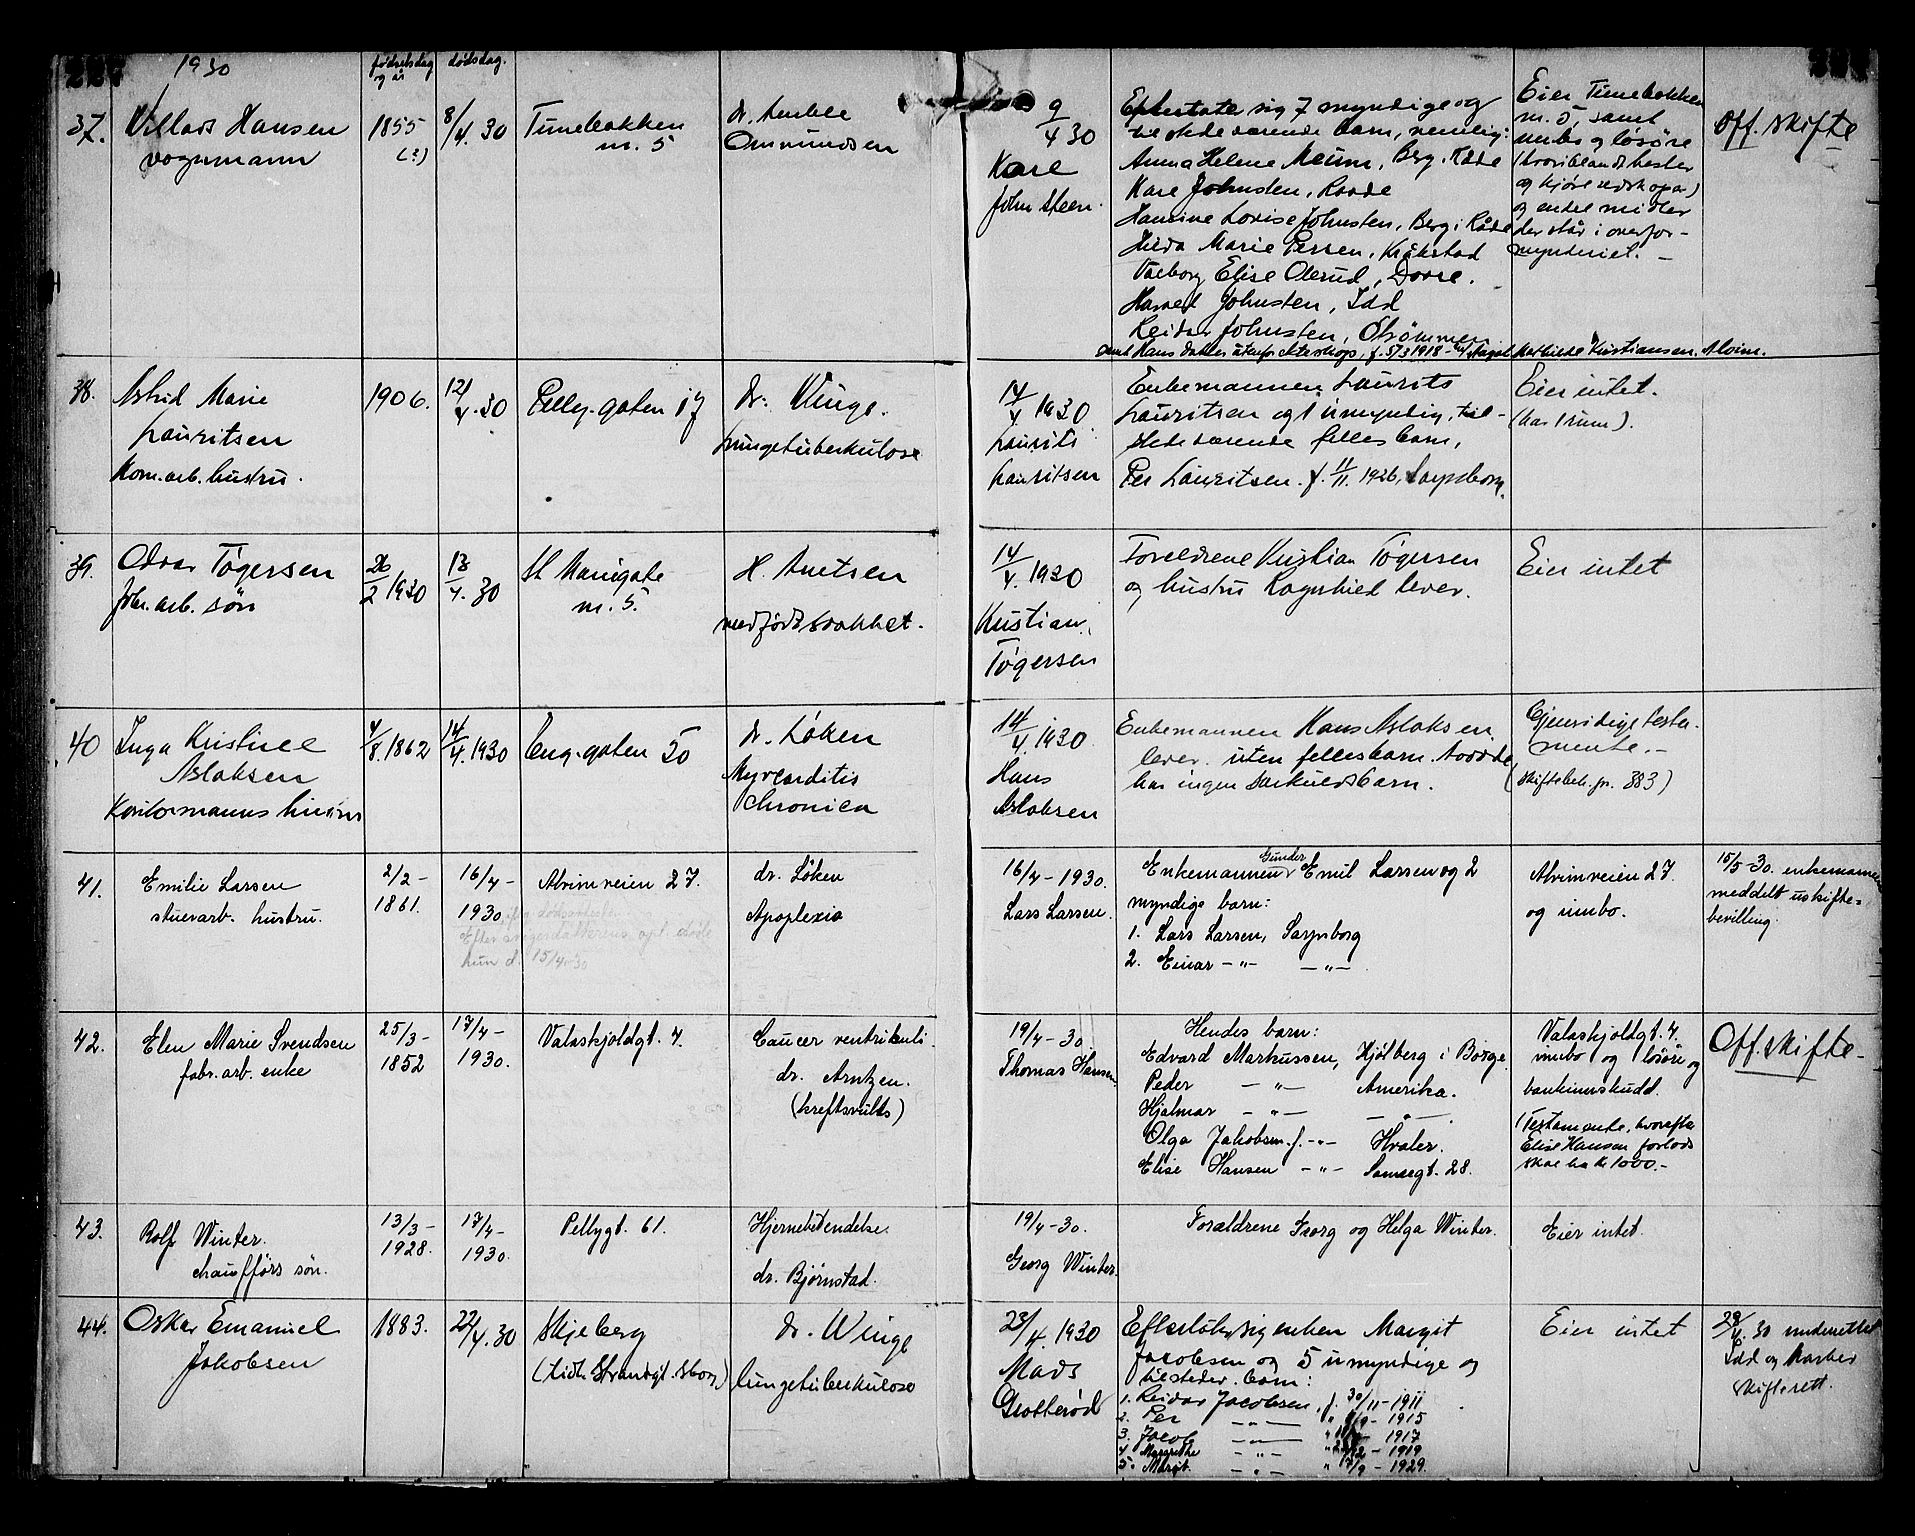 1930
fødselsdag
og år
dødsdag.
37.
Villads Hansen
vognmann
1855
(?)
8/4. 30
Tunebakken
nr. 5
dr. Amble
Omundsen
9/4 30
Kare
Johnsteen.
Efterlate sig 7 myndige og
tilstedeværende barn, nemlig:
Anna Helene Meum, Berg. Råde
Kare Johnsten, Raade
Hansine Lovise Johnsten, Berg i Råde
Hilda Marie Persen, Kråkstad
Valborg Elise Olerud,
Harald Johnsten, Idd
Reidar Johnsten, Strømmen
samt Hans datter utenfor ekteskap, f. 5/3 1918 - Mathilde Kristiansen. Alvim.
Eier Tunebakken
nr. 5, samt
innbo og løsøre
(hvoriblandt hester
og kjøreredskaper)
og endel midler
der står i overfor-
mynderiet. -
Off. skifte
38.
Astrid Marie
Lauritsen
Kom. arb. hustru.
1906.
12/4. 30
Pelly-gaten 17
dr. Winge.
Lungetuberkulose
14/4 1930
Laurits
Lauritsen
Enkemannen Laurits
Lauritsen og 1 umyndig, til-
stedeværende felles barn,
Per Lauritsen. f. 11/11. 1926, Sarpsborg.
Eier intet.
(har 1 rum).
39.
Odvar Tøgersen
fabr. arb. søn
26/2 1930
13/4. 30
St Mariegate
nr. 5.
H. Arntsen
medfødt svakhet.
14/4. 1930
Kristian
Tøgersen
Foreldrene Kristian Tøgersen
og hustru Ragnhild lever.
Eier intet
40
Inga Kristine
Aslaksen
Kontormanns hustru
4/8. 1862
14/4. 1930
Eng-gaten 50
dr. Løken
Myocarditis
chronica
14/4. 1930
Hans
Aslaksen
Enkemannen Hans Aslaksen
lever. uten fellesbarn. Avdøde
har ingen særkuldsbarn.
Gjensidige testa-
mente. -
(skiftebeh. pr. 383)
41.
Emilie Larsen
stuerarb. hustru.
2/2 -
1861.
16/4 -
1930, ifg. dødsattesten
Efter svigerdatterens opl. døde
hun d. 15/4-30
Alvimveien 27.
dr. Løken
Apoplexia
16/4 - 1930.
Lars Larsen.
Gunder
Enkemannen Emil Larsen og 2
myndige barn:
1. Lars Larsen, Sarpsborg
2. Einar - " - - " -
Alvimveien 27.
og innbo.
15/5-30. enkemannen
meddelt uskifte-
bevilling.
42.
Elen Marie Svendsen
fabr. arb. enke
25/3 -
1852
17/4 -
1930.
Valaskjoldgt. 4.
Cancer ventrikuli.
dr. Arntzen.
(kreftsvulst)
19/4 - 30.
Thomas Hansen
Hendes barn:
Edvard Markussen, Hjølberg i Borge
Peder - " - Amerika.
Hjalmar - " - - " -
Olga Jakobsen f. - " - Hvaler.
Elise Hansen - " - Sannesgt. 28.
Valaskjoldgt. 4.
innbo og løsøre og
bankinnskudd.
(Testamente, hvorefter
Elise Hansen forlods
skal ha kr 1000.-
Off. skifte -
43.
Rolf Winter.
chaufførs søn.
13/3 -
1928.
17/4 -
1930.
Pellygt. 61.
Hjernebetendelse.
dr. Bjørnstad.
19/4 - 30.
Georg Winter.
Foreldrene Georg og Helga Winter.
Eier intet.
44.
Oskar Emanuel
Jakobsen
1883.
22/4. 30
Skjeberg
(tidl. Strandgt. Sborg)
dr. Winge
lungetuberkulose
23/4. 1930
Mads
Grotterød
Efterlater sig enken Margit
Jacobsen og 5 umyndige og
tilstedev. barn:
1. Reidar Jacobsen, f. 30/11 - 1911
2. Per - " - " - 1915
3. Jacob - " - " - 1917
4. Margrethe - " - " /12 - 1919
5. Margit. - " - " 7/9 - 1929.
Eier intet
28/4. 30 underrettet
Idd og Marker
skifterett.